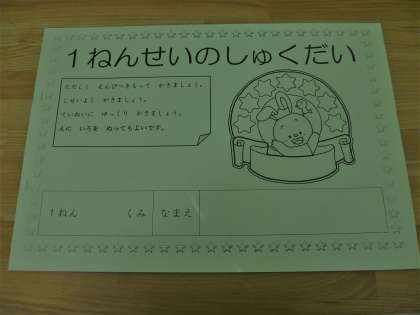 1ねんせいのしゅくだい
ただしく えんぴつをもって かきましょう。
しせいよく かきましょう。
ていねいに ゆっくり かきましょう。
えに いろを ぬってもよいです。
1ねん くみ なまえ